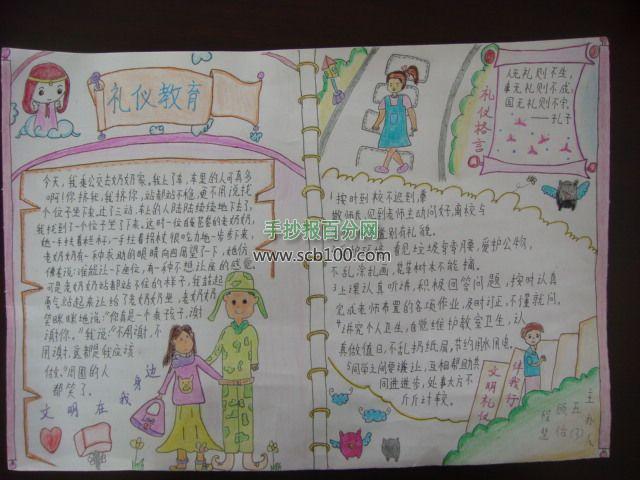 礼仪教育
今天,我坐公交去奶奶家。我上了车,车里的人可真多
啊!你挤我,我挤你,站都站不稳,更不用说找
个位子坐下来,过了三动,车上的人陆陆续续地下去了,
我找到了一个位子坐了下来。这时一位
她一手拄着拐杖,一手
老奶奶有一种求助的眼睛向四周望了一下,她仿
佛看说:谁能让一下座位,有一种不想让座的感觉。
可是老奶奶站都站不住的样子,我鼓起
勇气站起来让给了老奶奶坐,老奶奶
笑眯眯地说:“你真是一个乖孩子,谢
谢你。”我说:“不用谢,不
用谢,这都是我应该
做。”周围的人
都笑了。
文明在我身边
人无礼则不生,
事无礼则不成,
国无礼则不宁。
——孔子
礼仪格言
1按时到校不迟到,尊
敬师长,见到老师主动问好,离校与
道别有礼貌。
护环境,看见垃圾弯弯腰,爱护公物,
不乱涂乱画,花草树木不能摘。
3上课认真听讲,积极回答问题,按时认真
完成老师布置的各项作业,及时订正,不懂就问。
4讲究个人卫生,自觉维护教室卫生,认
真做值日,不乱扔纸屑,节约用水用电。
5同学之间要谦让,互相帮助共
同进进步,处事大方不
斤斤计较。
文明礼仪
伴我行
主办人
五(3)
手抄报百分网
www.scb100.com